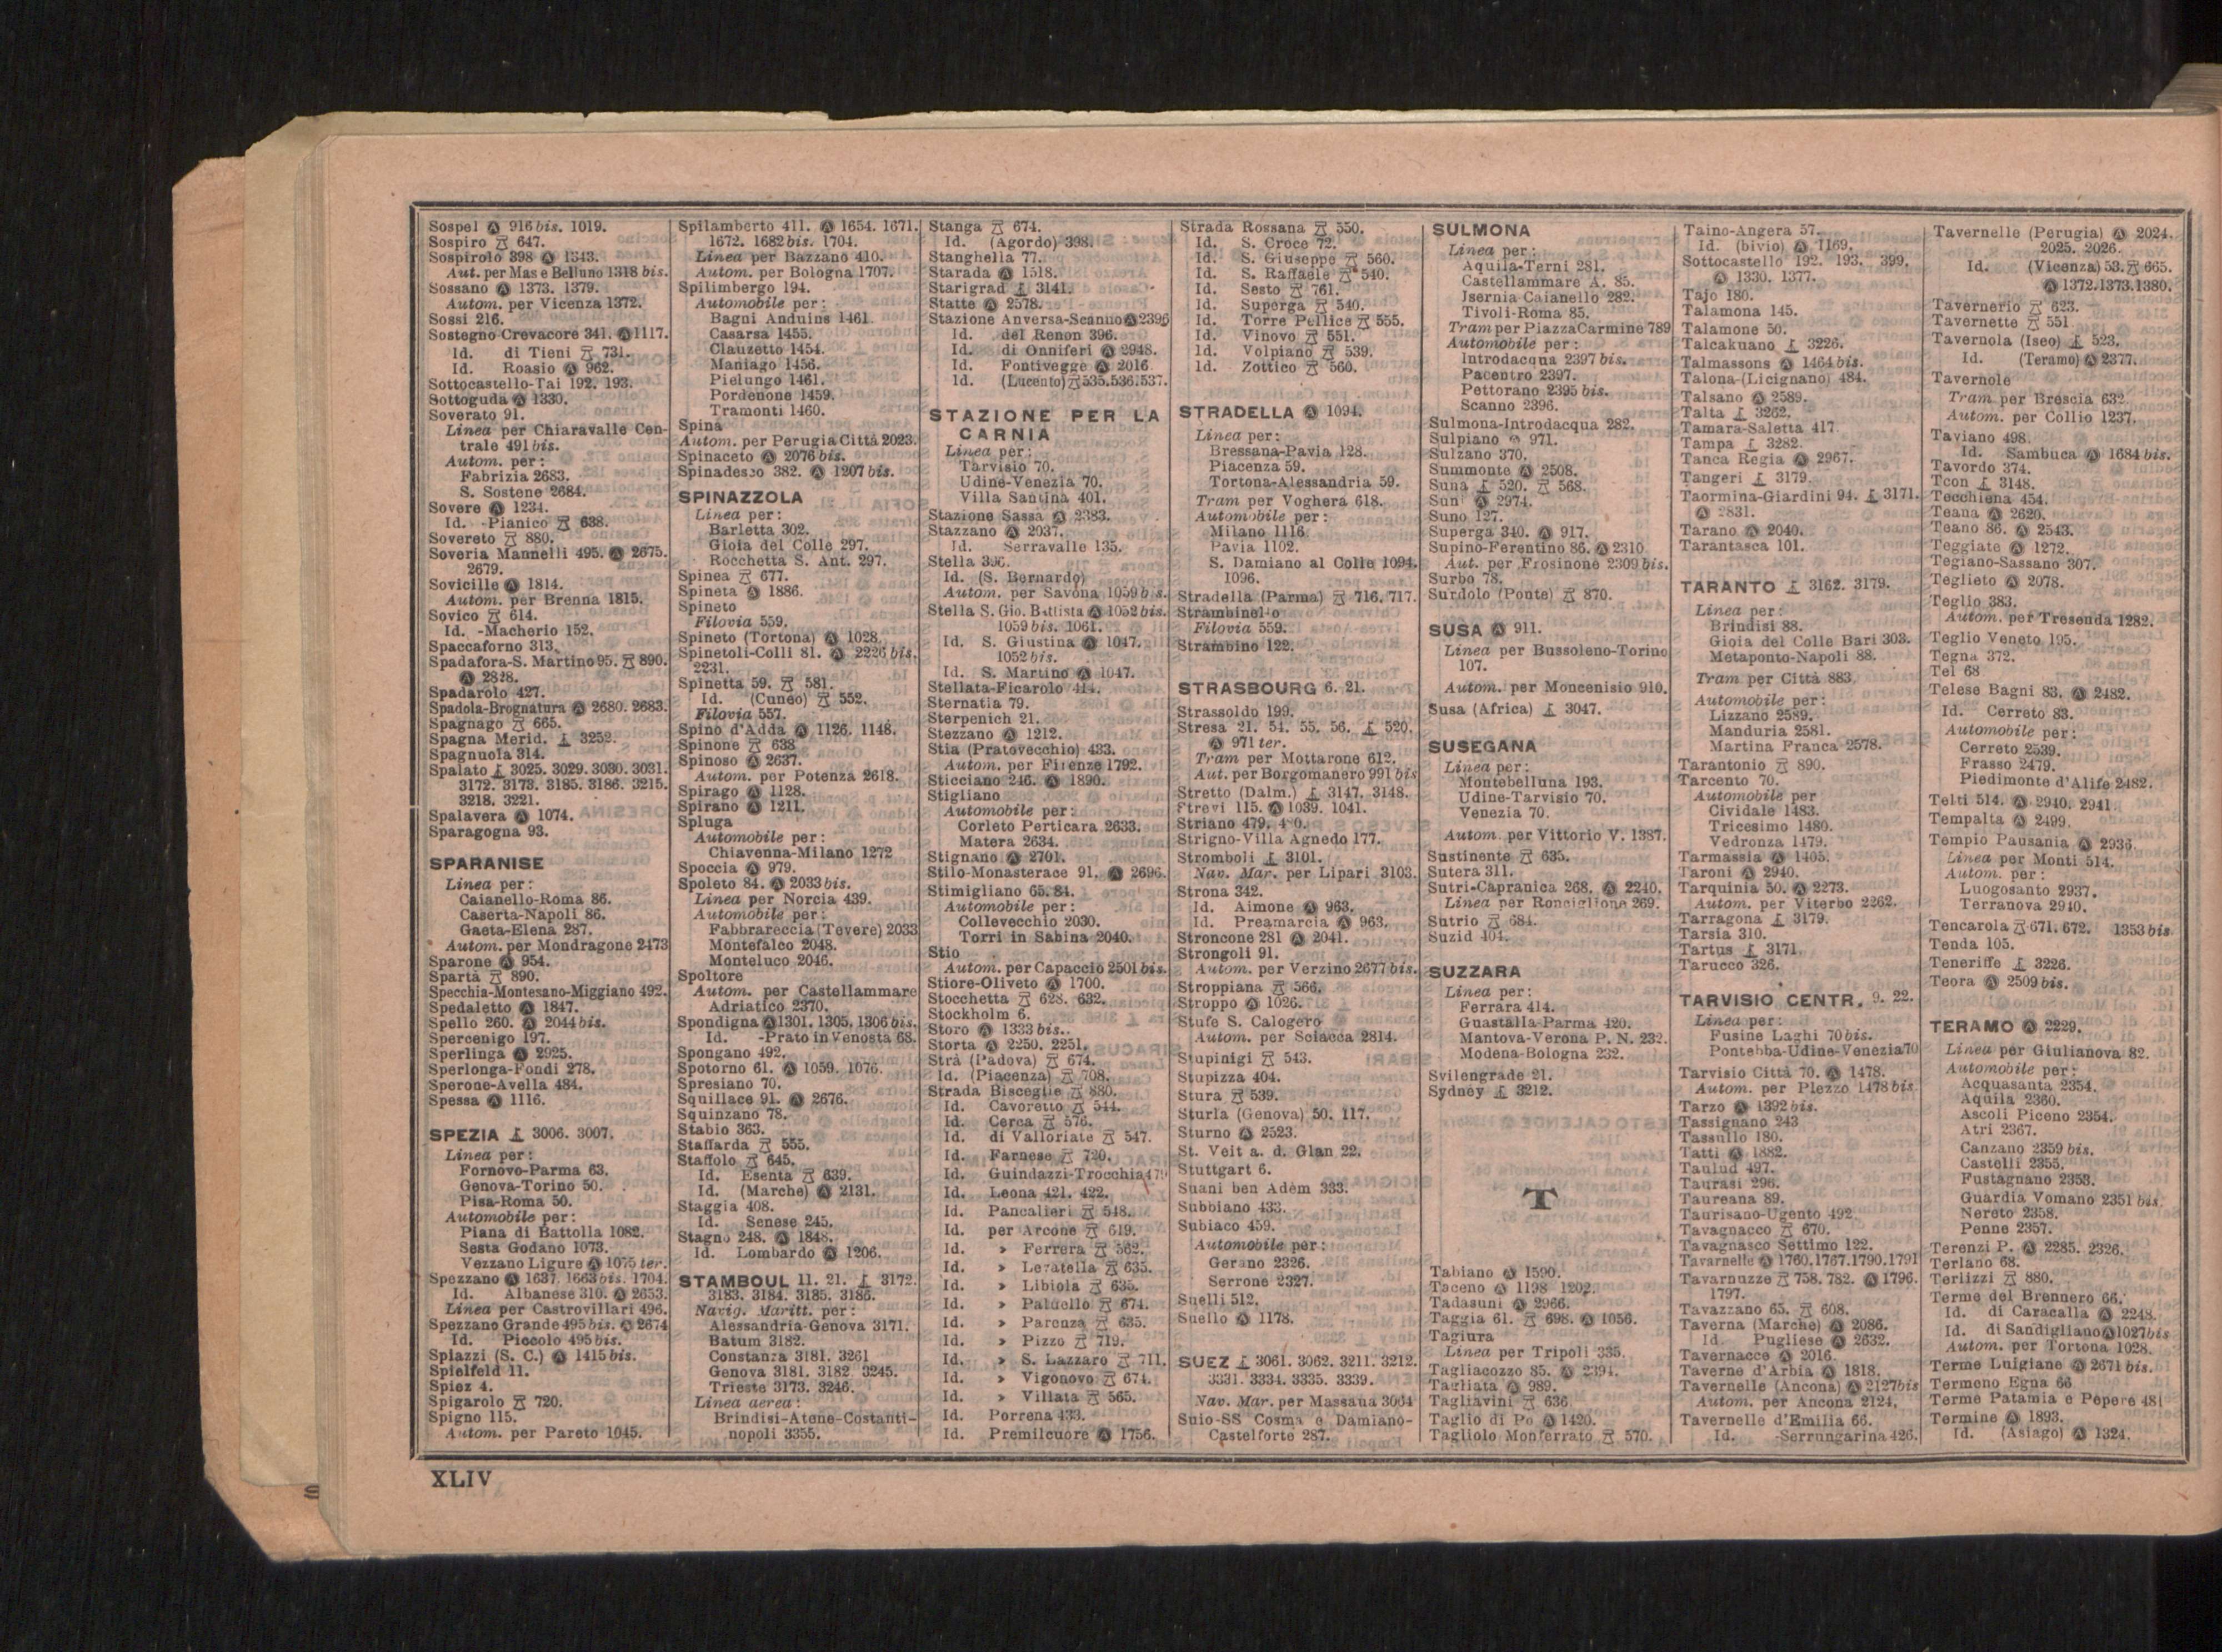 Sospel Ⓐ 916 bis. 1019.
Sospiro 647.
Sospirolo 398 Ⓐ 1343.
Aut. per Mas e Belluno 1318 bis.
Sossano Ⓐ 1373. 1379.
Autom. per Vicenza 1372.
Sossi 216.
Sostegno-Crevacore 341. Ⓐ 1117.
Id. di Tieni 731.
Id. Roasio Ⓐ 962.
Sottocastello-Tai 192. 193.
Sottoguda Ⓐ 1330.
Soverato 91.
Linea per Chiaravalle Cen-
trale 491 bis.
Autom. per:
Fabrizia 2683.
S. Sostene 2684.
Sovere Ⓐ 1234.
Id. -Pianico 638.
Sovereto 880.
Soveria Mannelli 495. Ⓐ 2675.
2679.
Sovicille Ⓐ 1814.
Autom. per Brenna 1815.
Sovico 614.
Id. -Macherio 152.
Spaccaforno 313.
Spadafora-S. Martino 95. 890.
Ⓐ 2828.
Spadarolo 427.
Spadola-Brognatura Ⓐ 2680. 2683.
Spagnago 665.
Spagna Merid. 3252.
Spagnuola 314.
Spalato 3025. 3029. 3030. 3031.
3172. 3173. 3185. 3186. 3215.
3218. 3221.
Spalavera Ⓐ 1074.
Sparagogna 93.
SPARANISE
Linea per:
Caianello-Roma 86.
Caserta-Napoli 86.
Gaeta-Elena 287.
Autom. per Mondragone 2473
Sparone Ⓐ 954.
Spartà 890.
Specchia-Montesano-Miggiano 492.
Spedaletto Ⓐ 1847.
Spello 260. Ⓐ 2044 bis.
Spercenigo 197.
Sperlinga Ⓐ 2925.
Sperlonga-Fondi 278.
Sperone-Avella 484.
Spessa Ⓐ 1116.
SPEZIA 3006. 3007.
Linea per:
Fornovo-Parma 63.
Genova-Torino 50.
Pisa-Roma 50.
Automobile per:
Piana di Battolla 1082.
Sesta Godano 1073.
Vezzano Ligure Ⓐ 1075 ter.
Spezzano Ⓐ 1637. 1663 bis. 1704.
Id. Albanese 310. Ⓐ 2653.
Linea per Castrovillari 496.
Spezzano Grande 495 bis. Ⓐ 2674
Id. Piccolo 495 bis.
Spiazzi (S. C.) Ⓐ 1415 bis.
Spielfeld 11.
Spiez 4.
Spigarolo 720.
Spigno 115.
Autom. per Pareto 1045.
Spilamberto 411. Ⓐ 1654. 1671.
1672. 1682 bis. 1704.
Linea per Bazzano 410.
Autom. per Bologna 1707.
Spilimbergo 194.
Automobile per:
Bagni Anduins 1461
Casarsa 1455.
Clauzetto 1454.
Maniago 1456.
Pielungo 1461.
Pordenone 1459.
Tramonti 1460.
Spina
Autom. per Perugia Città 2023.
Spinaceto Ⓐ 2076 bis.
Spinadesco 382. Ⓐ 1207 bis.
SPINAZZOLA
Linea per:
Barletta 302.
Gioia del Colle 297.
Rocchetta S. Ant. 297.
Spinea 677.
Spineta Ⓐ 1886.
Spineto
Filovia 559.
Spineto (Tortona) Ⓐ 1028.
Spinetoli-Colli 81. Ⓐ 2226 bis.
2231.
Spinetta 59. 581.
Id. (Cuneo) 552.
Filovia 557.
Spino d'Adda Ⓐ 1126. 1148.
Spinone 638
Spinoso Ⓐ 2637.
Autom. per Potenza 2618.
Spirago Ⓐ 1128.
Spirano Ⓐ 1211.
Spluga
Automobile per:
Chiavenna-Milano 1272
Spoccia Ⓐ 979.
Spoleto 84. Ⓐ 2033 bis.
Linea per Norcia 439.
Automobile per:
Fabbrareccia (Tevere) 2033
Montefalco 2048.
Monteluco 2046.
Spoltore
Autom. per Castellammare
Adriatico 2370.
Spondigna Ⓐ 1301. 1305. 1306 bis.
Id. -Prato in Venosta 68.
Spongano 492.
Spotorno 61. Ⓐ 1059. 1076.
Spresiano 70.
Squillace 91. Ⓐ 2676.
Squinzano 78.
Stabio 363.
Staffarda 555.
Staffolo 645.
Id. Esenta 639.
Id. (Marche) Ⓐ 2131.
Staggia 408.
Id. Senese 245.
Stagno 248. Ⓐ 1848.
Id. Lombardo Ⓐ 1206.
STAMBOUL 11. 21. 3172.
3183. 3184. 3185. 3186.
Navig. Maritt. per:
Alessandria-Genova 3171.
Batum 3182.
Constanza 3181. 3261
Genova 3181. 3182 3245.
Trieste 3173. 3246.
Linea aerea:
Brindisi-Atene-Costanti-
nopoli 3355.
Stanga 674.
Id. (Agordo) 398.
Stanghella 77.
Starada Ⓐ 1518.
Starigrad 3141.
Statte Ⓐ 2578.
Stazione Anversa-Scanno Ⓐ 2396
Id. del Renon 396.
Id. di Onniferi Ⓐ 2948.
Id. Fontivegge Ⓐ 2016
Id. (Lucento) 535.536.537.
STAZIONE PER LA
CARNIA
Linea per:
Tarvisio 70.
Udine-Venezia 70.
Villa Santina 401.
Stazione Sassa Ⓐ 2383.
Stazzano Ⓐ 2037.
Id. Serravalle 135.
Stella 396.
Id. (S. Bernardo)
Autom. per Savona 1059 bis.
Stella S. Gio. Battista Ⓐ 1052 bis.
1059 bis. 1061.
Id. S. Giustina Ⓐ 1047.
1052 bis.
Id. S. Martino Ⓐ 1047.
Stellata-Ficarolo 414.
Sternatia 79.
Sterpenich 21.
Stezzano Ⓐ 1212.
Stia (Pratovecchio) 433.
Autom. per Firenze 1792.
Sticciano 246. Ⓐ 1890.
Stigliano
Automobile per:
Corleto Perticara 2633.
Matera 2634.
Stignano Ⓐ 2701.
Stilo-Monasterace 91. Ⓐ 2696.
Stimigliano 65. 84.
Automobile per:
Collevecchio 2030.
Torri in Sabina 2040.
Stio
Autom. per Capaccio 2501 bis.
Stiore-Oliveto Ⓐ 1700.
Stocchetta 628. 632.
Stockholm 6.
Storo Ⓐ 1333 bis.
Storta Ⓐ 2250. 2251.
Strà (Padova) 674.
Id. (Piacenza) 708.
Strada Bisceglie 880.
Id. Cavoretto 544.
Id. Cerca 576.
Id. di Valloriate 547.
Id. Farnese 720.
Id. Guindazzi-Trocchia 479
Id. Leona 421. 422.
Id. Pancalieri 548.
Id. per Arcone 619.
Id. » Ferrera 562.
Id. » Levatella 635.
Id. » Libiola 635.
Id. » Paluello 674.
Id. » Parenza 635.
Id. » Pizzo 719.
Id. » S. Lazzaro 711.
Id. » Vigonovo 674.
Id. » Villata 565.
Id. Porrena 433.
Id. Premilcuore Ⓐ 1756.
Strada Rossana 550.
Id. S. Croce 72.
Id. S. Giuseppe 560.
Id. S. Raffaele 540.
Id. Sesto 761.
Id. Superga 540.
Id. Torre Pellice 555.
Id. Vinovo 551.
Id. Volpiano 539.
Id. Zottico 560.
STRADELLA Ⓐ 1094.
Linea per:
Bressana-Pavia 128.
Piacenza 59.
Tortona-Alessandria 59.
Tram per Voghera 618.
Automobile per:
Milano 1116
Pavia 1102.
S. Damiano al Colle 1094.
1096.
Stradella (Parma) 716. 717.
Strambinello
Filovia 559.
Strambino 122.
STRASBOURG 6. 21.
Strassoldo 199.
Stresa 21. 54. 55. 56. 520.
Ⓐ 971 ter.
Tram per Mottarone 612.
Aut. per Borgomanero 991 bis
Stretto (Dalm.) 3147. 3148.
Strevi 115. Ⓐ 1039. 1041.
Striano 479.
Strigno-Villa Agnedo 177.
Stromboli 3101.
Nav. Mar. per Lipari 3103.
Strona 342.
Id. Aimone Ⓐ 963.
Id. Preamarcia Ⓐ 963.
Stroncone 281 Ⓐ 2041.
Strongoli 91.
Autom. per Verzino 2677 bis.
Stroppiana 566.
Stroppo Ⓐ 1026.
Stufe S. Calogero
Autom. per Sciacca 2814.
Stupinigi 543.
Stupizza 404.
Stura 539.
Sturla (Genova) 50. 117.
Sturno Ⓐ 2523.
St. Veit a. d. Glan 22.
Stuttgart 6.
Suani ben Adèm 333.
Subbiano 433.
Subiaco 459.
Automobile per:
Gerano 2326.
Serrone 2327.
Suelli 512.
Suello Ⓐ 1178.
SUEZ 3061. 3062. 3211. 3212.
3331. 3334. 3335. 3339.
Nav. Mar. per Massaua 3064
Suio-SS Cosma e Damiano-
Castelforte 287.
SULMONA
Linea per:
Aquila-Terni 281.
Castellammare A. 85.
Isernia-Caianello 282.
Tivoli-Roma 85.
Tram per Piazza Carmine 789
Automobile per:
Introdacqua 2397 bis.
Pacentro 2397.
Pettorano 2395 bis.
Scanno 2396.
Sulmona-Introdacqua 282.
Sulpiano Ⓐ 971.
Sulzano 370.
Summonte Ⓐ 2508.
Suna 520. 568.
Suni Ⓐ 2974.
Suno 127.
Superga 340. Ⓐ 917.
Supino-Ferentino 86. Ⓐ 2310
Aut. per Frosinone 2309 bis.
Surbo 78.
Surdolo (Ponte) 870.
SUSA Ⓐ 911.
Linea per Bussoleno-Torino
107.
Autom. per Moncenisio 910.
Susa (Africa) 3047.
SUSEGANA
Linea per:
Montebelluna 193.
Udine-Tarvisio 70.
Venezia 70.
Autom. per Vittorio V. 1387.
Sustinente 635.
Sutera 311.
Sutri-Capranica 268. Ⓐ 2240.
Linea per Ronciglione 269.
Sutrio 684.
Suzid 404.
SUZZARA
Linea per:
Ferrara 414.
Guastalla-Parma 420.
Mantova-Verona P. N. 232.
Modena-Bologna 232.
Svilengrade 21.
Sydney 3212.
T
Tabiano Ⓐ 1590.
Taceno Ⓐ 1198 1202.
Tadasuni Ⓐ 2966.
Taggia 61. 698. Ⓐ 1056.
Tagiura
Linea per Tripoli 335.
Tagliacozzo 85. Ⓐ 2394.
Tagliata Ⓐ 989.
Tagliavini 636
Taglio di Po Ⓐ 1420.
Tagliolo Monferrato 570.
Taino-Angera 57.
Id. (bivio) Ⓐ 1169.
Sottocastello 192. 193. 399.
Ⓐ 1330. 1377.
Tajo 180.
Talamona 145.
Talamone 50.
Talcakuano 3226.
Talmassons Ⓐ 1464 bis.
Talona-(Licignano) 484.
Talsano Ⓐ 2589.
Talta 3262.
Tamara-Saletta 417
Tampa 3282.
Tanca Regia Ⓐ 2967.
Tangeri 3179.
Taormina-Giardini 94. 3171.
Ⓐ 2831.
Tarano Ⓐ 2040.
Tarantasca 101.
TARANTO 3162. 3179.
Linea per:
Brindisi 88.
Gioia del Colle Bari 303.
Metaponto-Napoli 88.
Tram per Città 883.
Automobile per:
Lizzano 2589.
Manduria 2581.
Martina Franca 2578.
Tarantonio 890.
Tarcento 70.
Automobile per
Cividale 1483.
Tricesimo 1480.
Vedronza 1479.
Tarmassia Ⓐ 1405.
Taroni Ⓐ 2940.
Tarquinia 50. Ⓐ 2273.
Autom. per Viterbo 2262.
Tarragona 3179.
Tarsia 310.
Tartus 3171.
Tarucco 326.
TARVISIO CENTR. 9. 22.
Linea per:
Fusine Laghi 70 bis.
Pontebba-Udine-Venezia 70
Tarvisio Città 70. Ⓐ 1478.
Autom. per Plezzo 1478 bis
Tarzo Ⓐ 1392 bis.
Tassignano 243
Tassullo 180.
Tatti Ⓐ 1882.
Taulud 497.
Taurasi 296.
Taureana 89.
Taurisano-Ugento 492
Tavagnacco 670.
Tavagnasco Settimo 122.
Tavarnelle Ⓐ 1760.1767.1790.1791
Tavarnuzze 758. 782. Ⓐ 1796.
1797.
Tavazzano 65. 608.
Taverna (Marche) Ⓐ 2086.
Id. Pugliese Ⓐ 2632.
Tavernacce Ⓐ 2016
Taverne d'Arbia Ⓐ 1818.
Tavernelle (Ancona) Ⓐ 2127 bis
Autom. per Ancona 2124.
Tavernelle d'Emilia 66.
Id. -Serrungarina 426.
Tavernelle (Perugia) Ⓐ 2024.
2025. 2026.
Id. (Vicenza) 53. 665.
Ⓐ 1372.1373.1380.
Tavernerio 623.
Tavernette 551
Tavernola (Iseo) 523.
Id. (Teramo) Ⓐ 2377.
Tavernole
Tram per Brescia 632
Autom. per Collio 1237.
Taviano 498.
Id. Sambuca Ⓐ 1684 bis.
Tavordo 374.
Tcon 3148.
Tecchiena 454.
Teana Ⓐ 2620.
Teano 86. Ⓐ 2543.
Teggiate Ⓐ 1272.
Tegiano-Sassano 307.
Teglieto Ⓐ 2078.
Teglio 383.
Autom. per Tresenda 1282.
Teglio Veneto 195.
Tegna 372.
Tel 68
Telese Bagni 83. Ⓐ 2482.
Id. Cerreto 83.
Automobile per:
Cerreto 2539.
Frasso 2479.
Piedimonte d'Alife 2482.
Telti 514. Ⓐ 2940. 2941.
Tempalta Ⓐ 2499.
Tempio Pausania Ⓐ 2936.
Linea per Monti 514.
Autom. per:
Luogosanto 2937.
Terranova 2940.
Tencarola 671. 672. 1353 bis
Tenda 105.
Teneriffe 3226.
Teora Ⓐ 2509 bis.
TERAMO Ⓐ 2229.
Linea per Giulianova 82.
Automobile per:
Acquasanta 2354.
Aquila 2360.
Ascoli Piceno 2354.
Atri 2367.
Canzano 2359 bis.
Castelli 2355.
Fustagnano 2353.
Guardia Vomano 2351 bis.
Nereto 2358.
Penne 2357.
Terenzi P. Ⓐ 2285. 2326.
Terlano 68.
Terlizzi 880.
Terme del Brennero 66.
Id. di Caracalla Ⓐ 2248.
Id. di Sandigliano Ⓐ 1027 bis
Autom. per Tortona 1028.
Terme Luigiane Ⓐ 2671 bis.
Termeno Egna 66
Terme Patamia e Pepere 481
Termine Ⓐ 1893.
Id. (Asiago) Ⓐ 1324.
XLIV